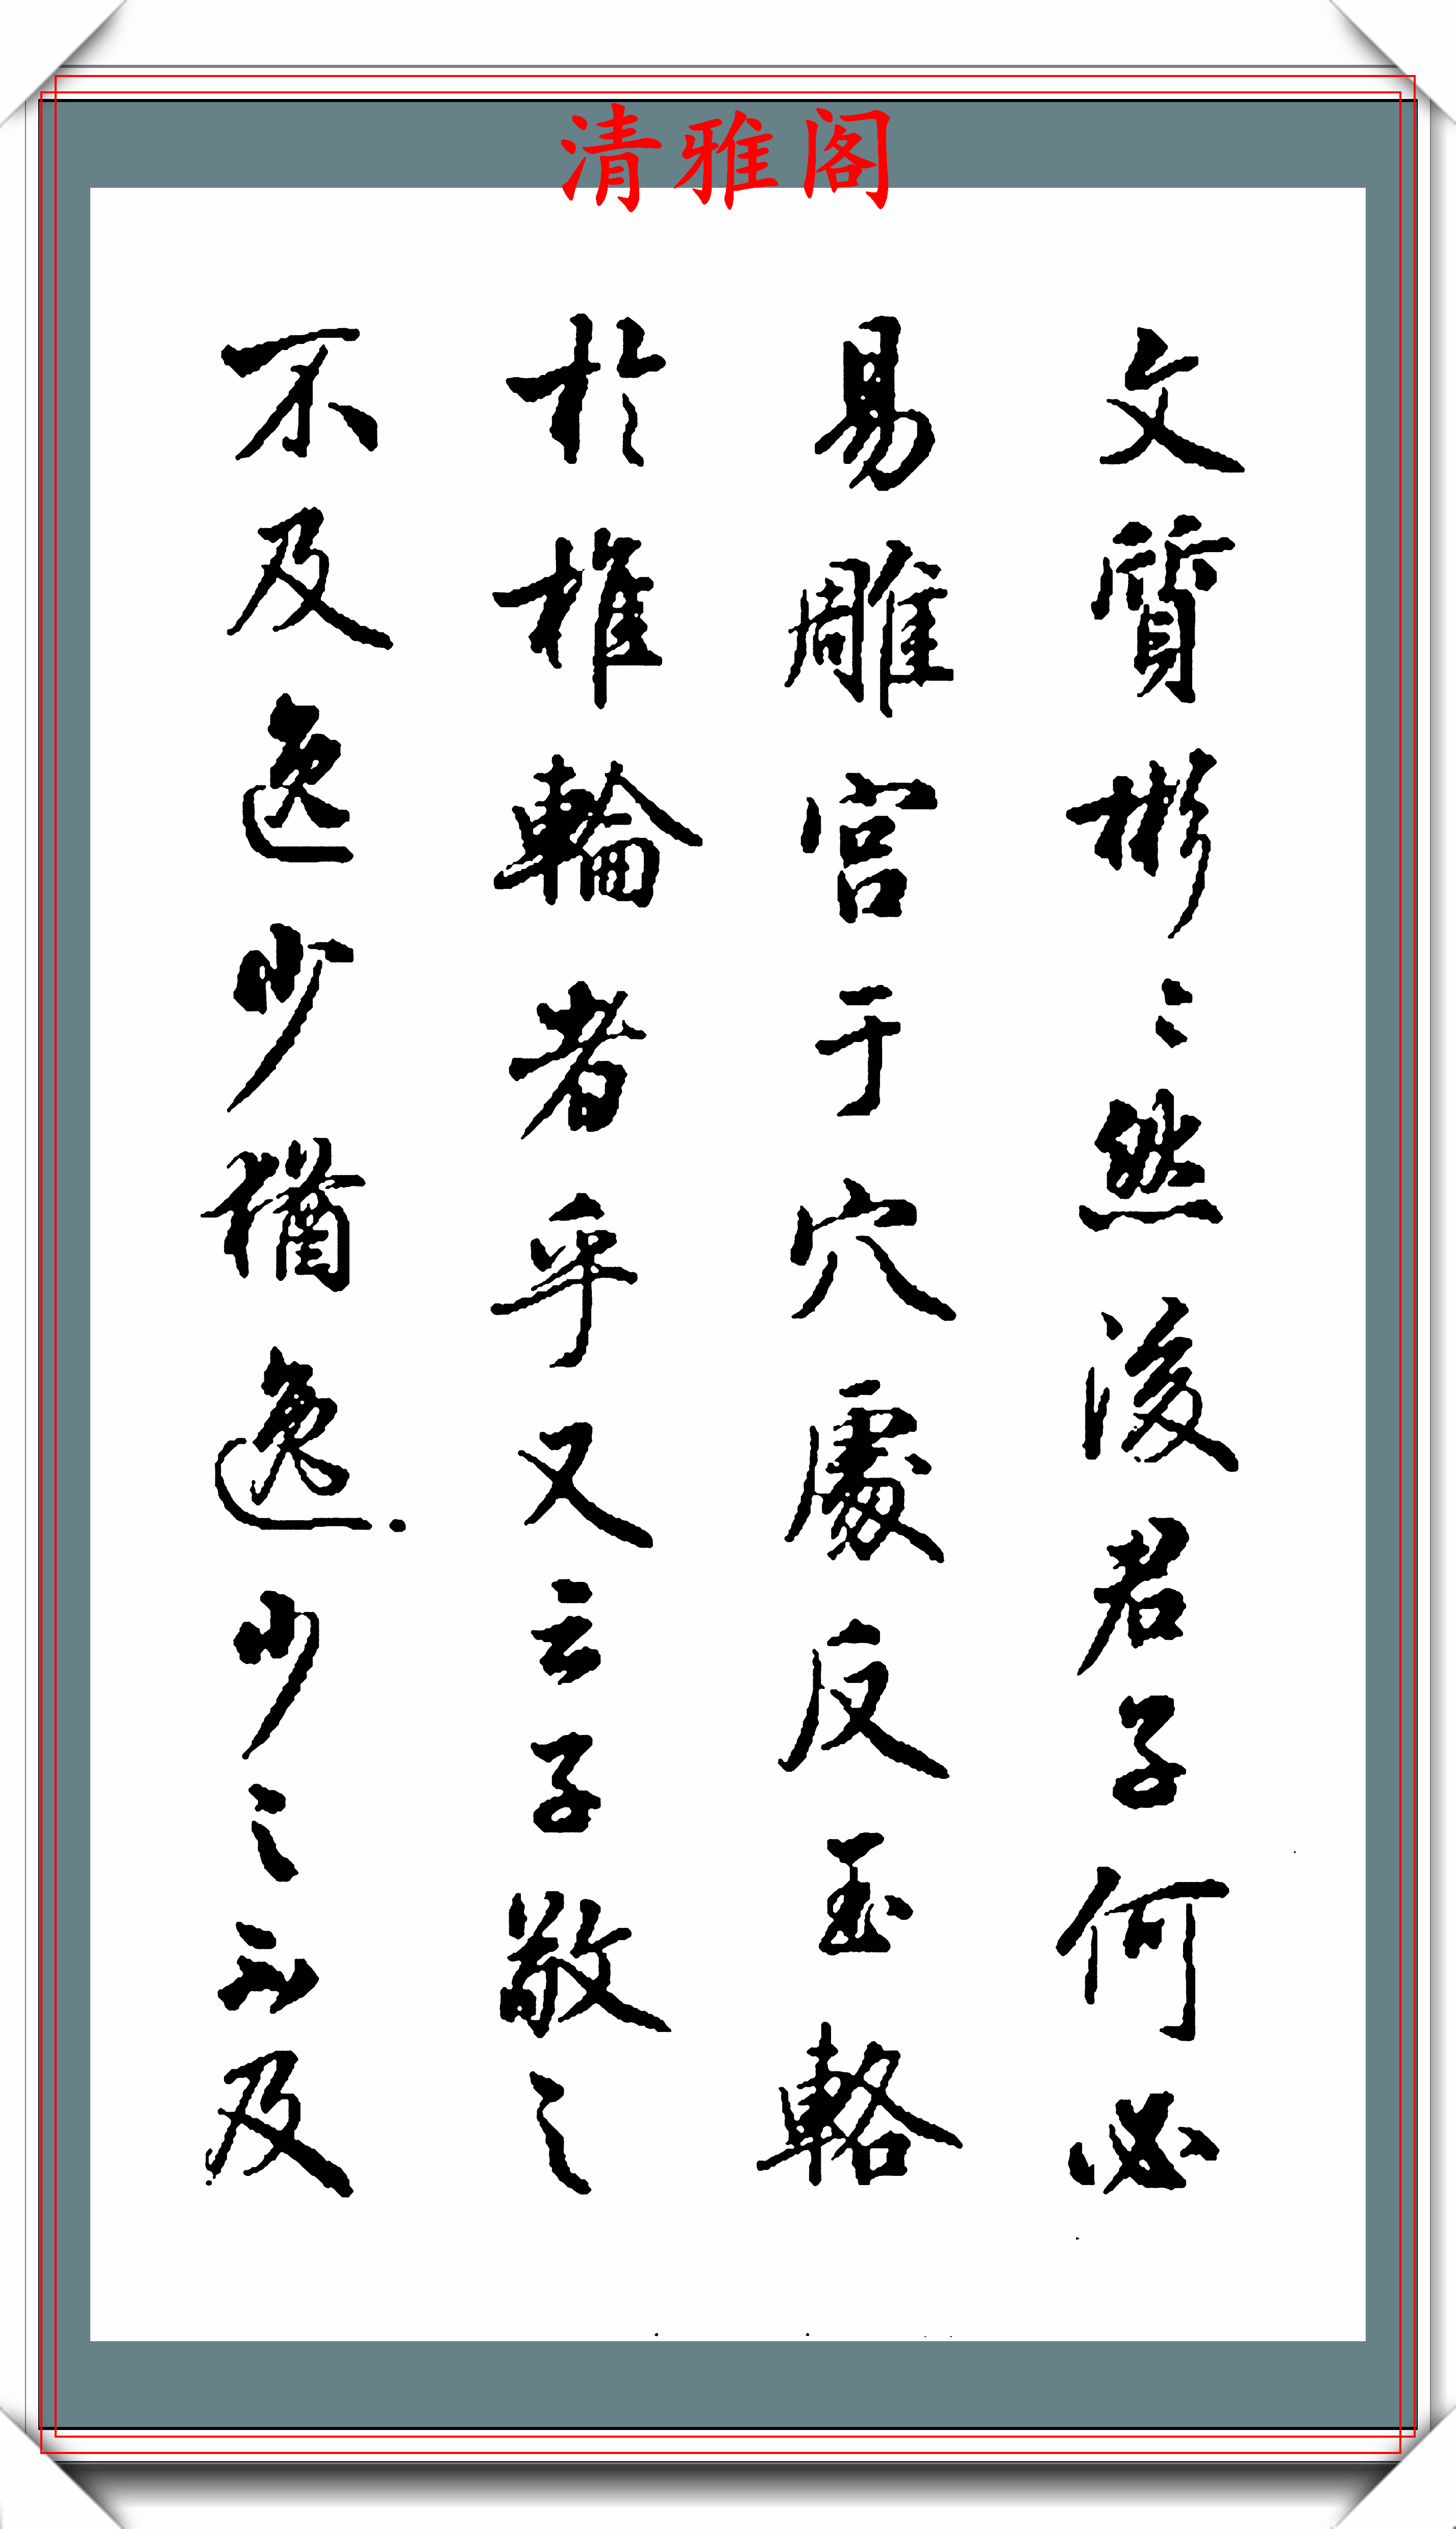 清雅阁
文質彬〻然後君子何必
易雕宫于穴處反玉輅
於椎輪者乎又云子敬之
不及逸少猶逸少之不及